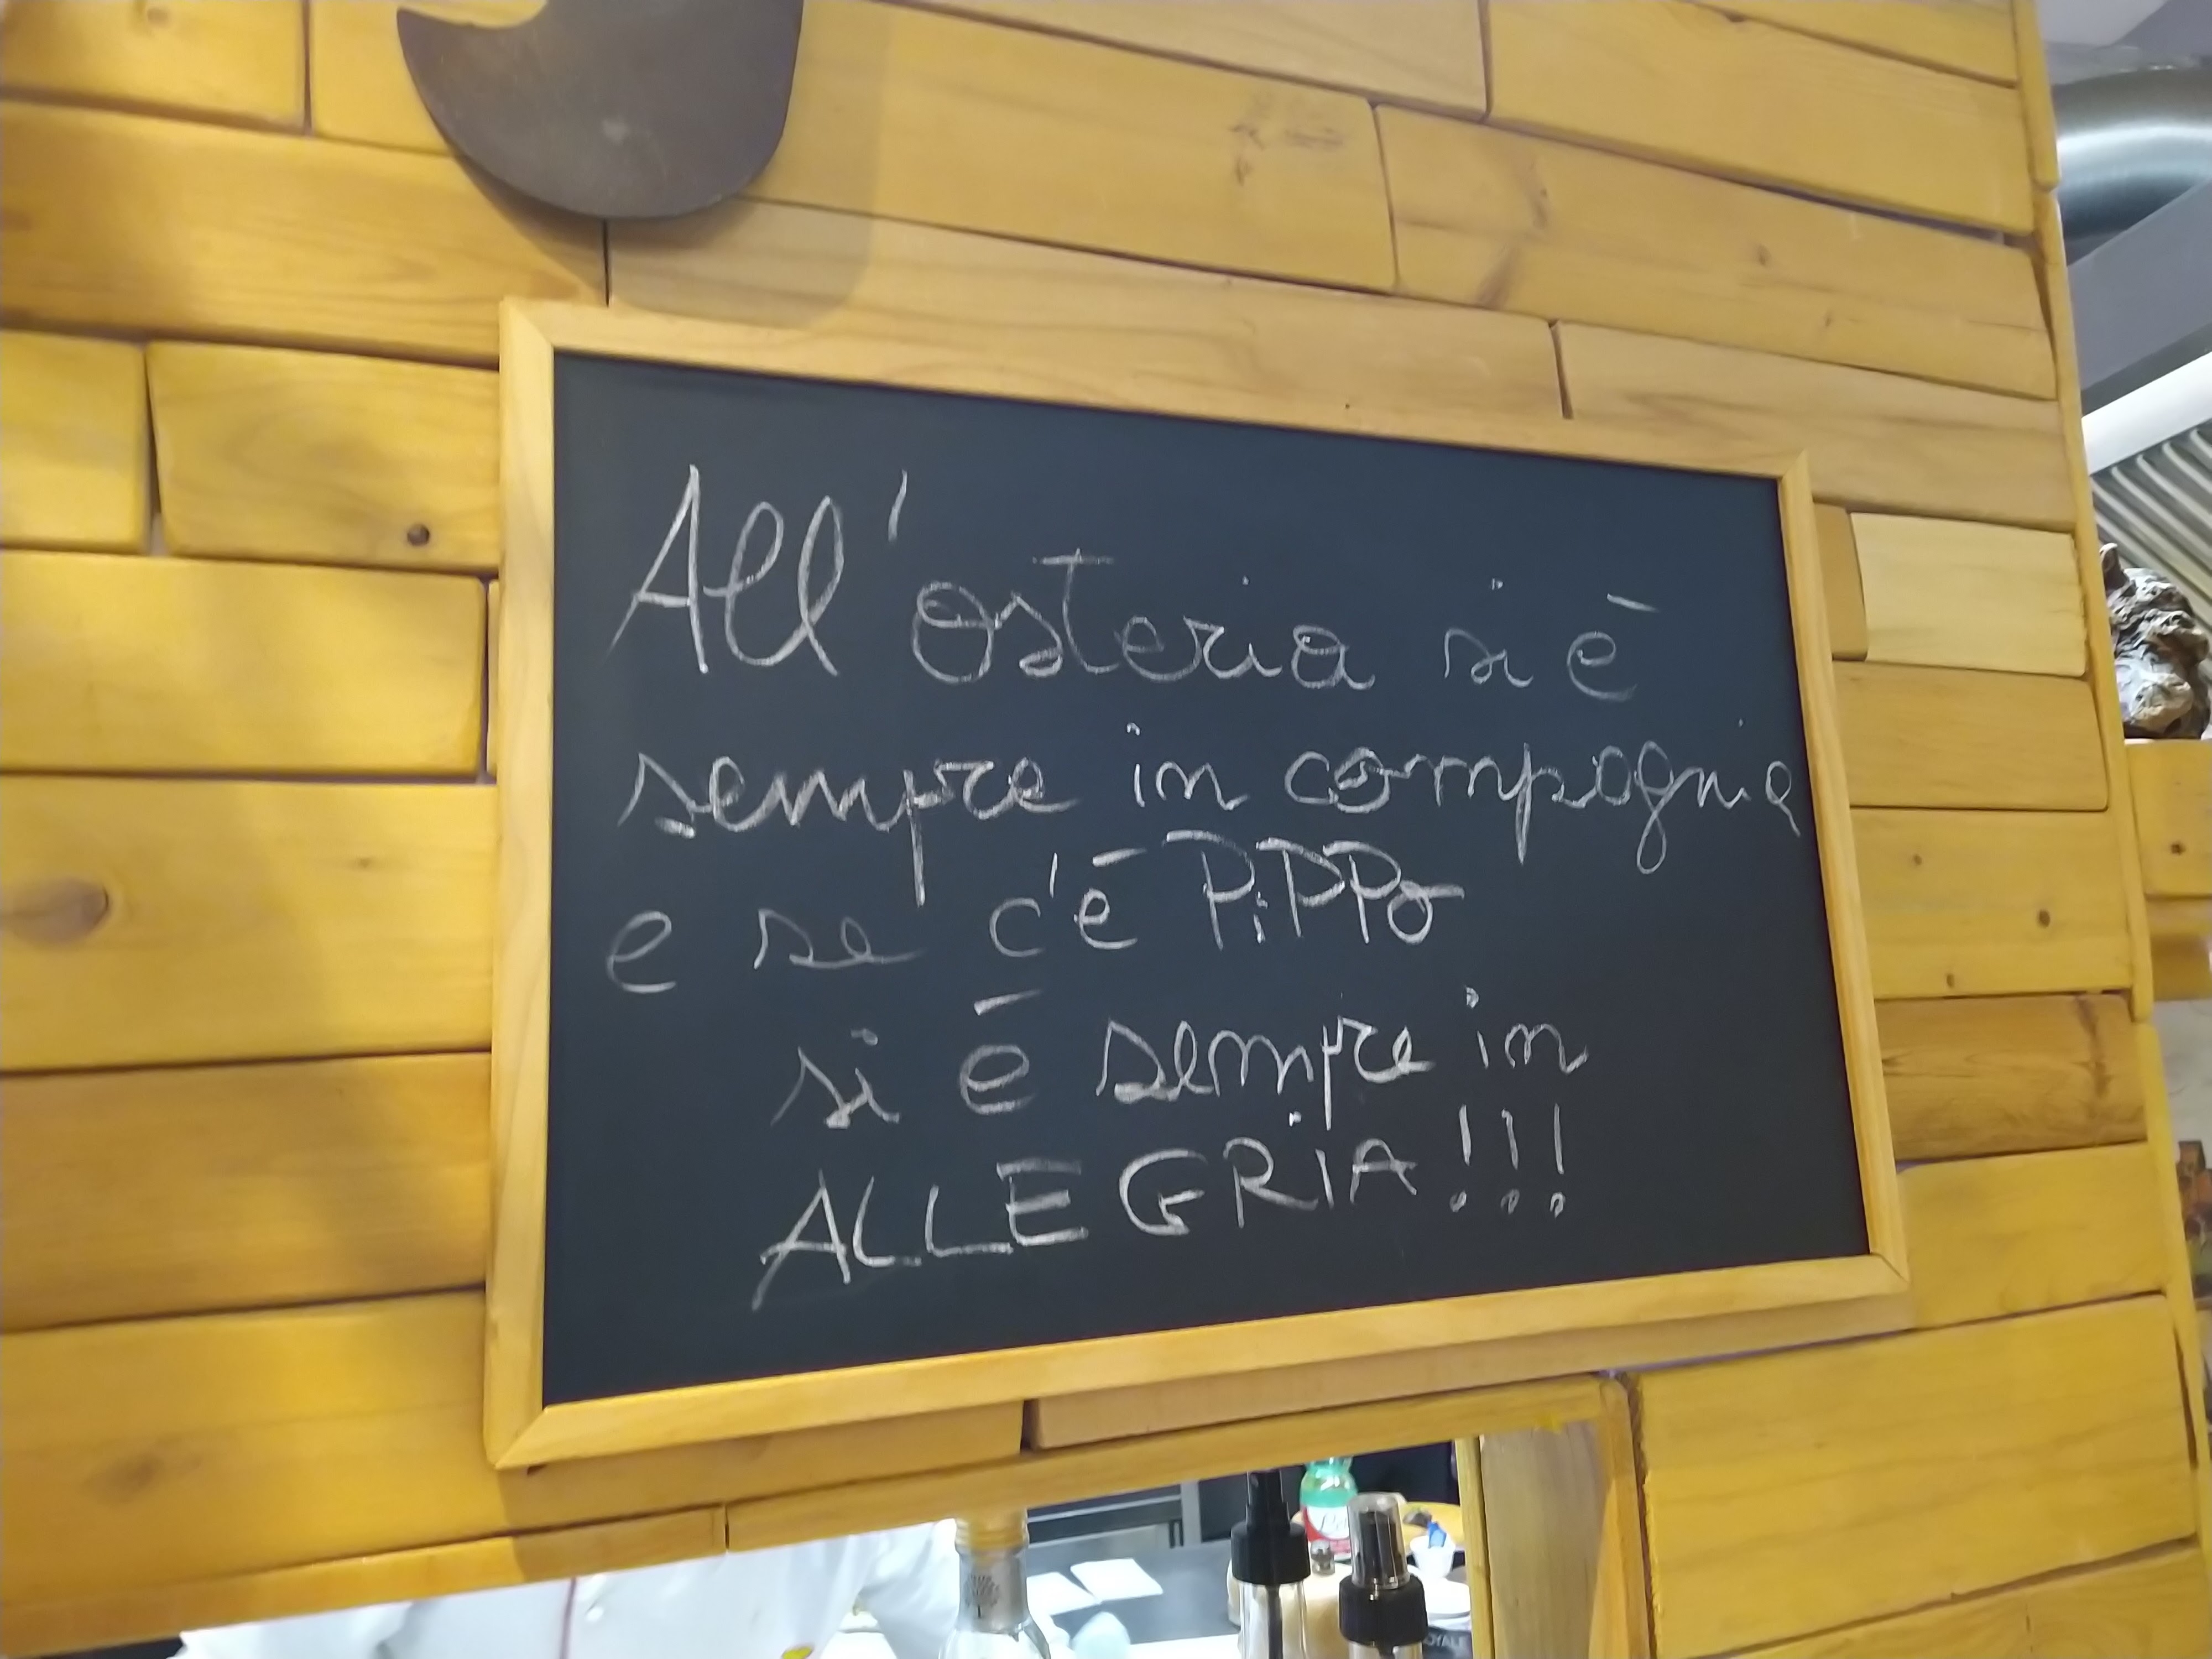 All' osteria si è
sempre in compagnia
e se c'è PiPPo
si è sempre in
ALLEGRiA!!!